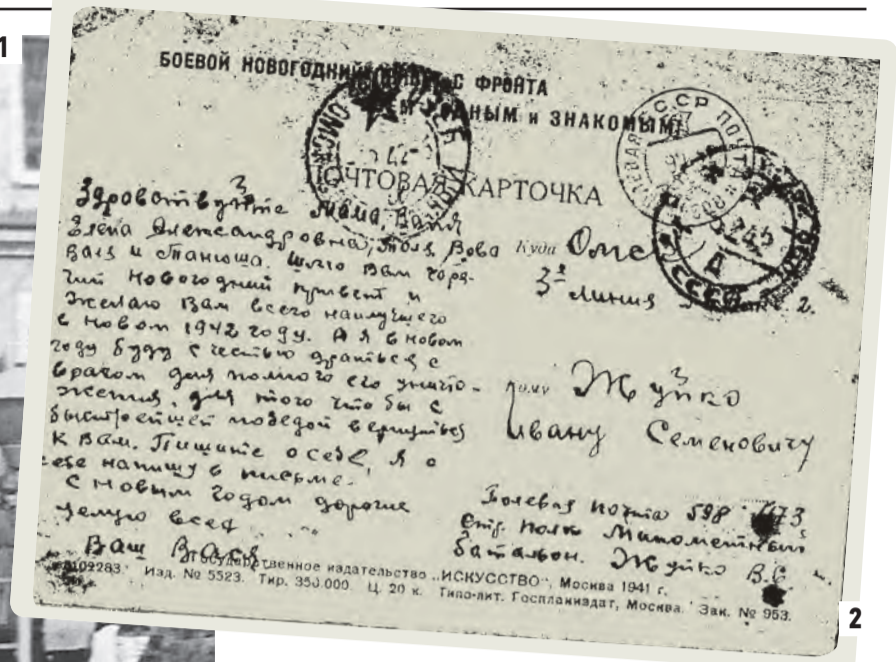 1
БОЕВОЙ НОВОГОДНИЙ С ФРОНТА
РОДНЫМ и ЗНАКОМЫМ
ПОЧТОВАЯ КАРТОЧКА
Здравствуйте мама, Ваня
Елена Александровна, Толя, Вова
Валя и Танюша. Шлю Вам горя-
чий Новогодний привет и
желаю Вам всего наилучшего
в новом 1942 году. А я в новом
году буду с честью драться с
врагом для полного его уничто-
жения, для того что бы с
быстрейшей победой вернуться
к Вам. Пишите о себе, я о
себе напишу в письме.
С новым годом дорогие
целую всех
Ваш Вася
Куда Омск
3я линия
2.
Кому Жуйко
Ивану Семеновичу
Полевая почта 598
Стр. полк Минометный
батальон. Жуйко В.С
Государственное издательство „ИСКУССТВО", Москва 1941 г.
Изд. № 5523. Тир. 350.000. Ц. 20 к. Типо-лит. Госпланиздат, Москва. Зак. № 953.
2